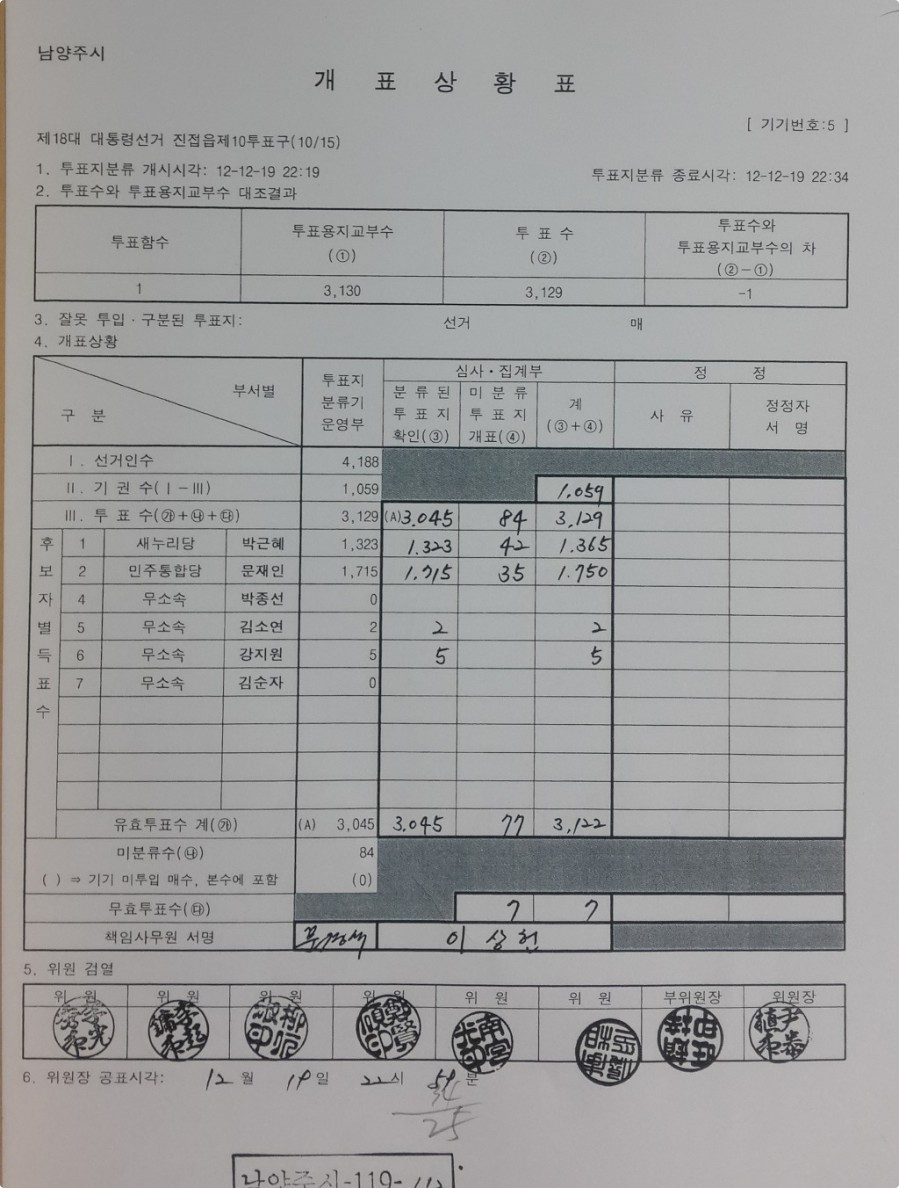 남양주시
개 표 상 황 표
[ 기기번호:5 ]
제18대 대통령선거 진접읍제10투표구(10/15)
1. 투표지분류 개시시각: 12-12-19 22:19
투표지분류 종료시각: 12-12-19 22:34
2. 투표수와 투표용지교부수 대조결과
투표함수 투표용지교부수 (①) 투 표 수 (②) 투표수와 투표용지교부수의 차 (②-①)
1 3,130 3,129 -1
3. 잘못 투입·구분된 투표지: 선거 매
4. 개표상황
부서별
구 분
투표지 분류기 운영부
심사·집계부
정 정
분 류 된 투 표 지 확인(③)
미 분 류 투 표 지 개표(④)
계 (③+④)
사 유
정정자 서 명
Ⅰ. 선거인수 4,188
Ⅱ. 기 권 수(Ⅰ-Ⅲ) 1,059 1.059
Ⅲ. 투 표 수(㉮+㉯+㉰) 3,129 (A)3.045 84 3,129
후보자별득표수
1 새누리당 박근혜 1,323 1.323 42 1.365
2 민주통합당 문재인 1,715 1.715 35 1.750
4 무소속 박종선 0
5 무소속 김소연 2 2 2
6 무소속 강지원 5 5 5
7 무소속 김순자 0
유효투표수 계(㉮) (A) 3,045 3.045 77 3,122
미분류수(㉯) 84
( ) ⇒ 기기 미투입 매수, 본수에 포함 (0)
무효투표수(㉰) 7 7
책임사무원 서명 이 상 헌
5. 위원 검열
위 원 위 원 위 원 위 원 위 원 위 원 부위원장 위원장
6. 위원장 공표시각: 12 월 19 일 22 시 59 분
34
25
남양주시-119-112